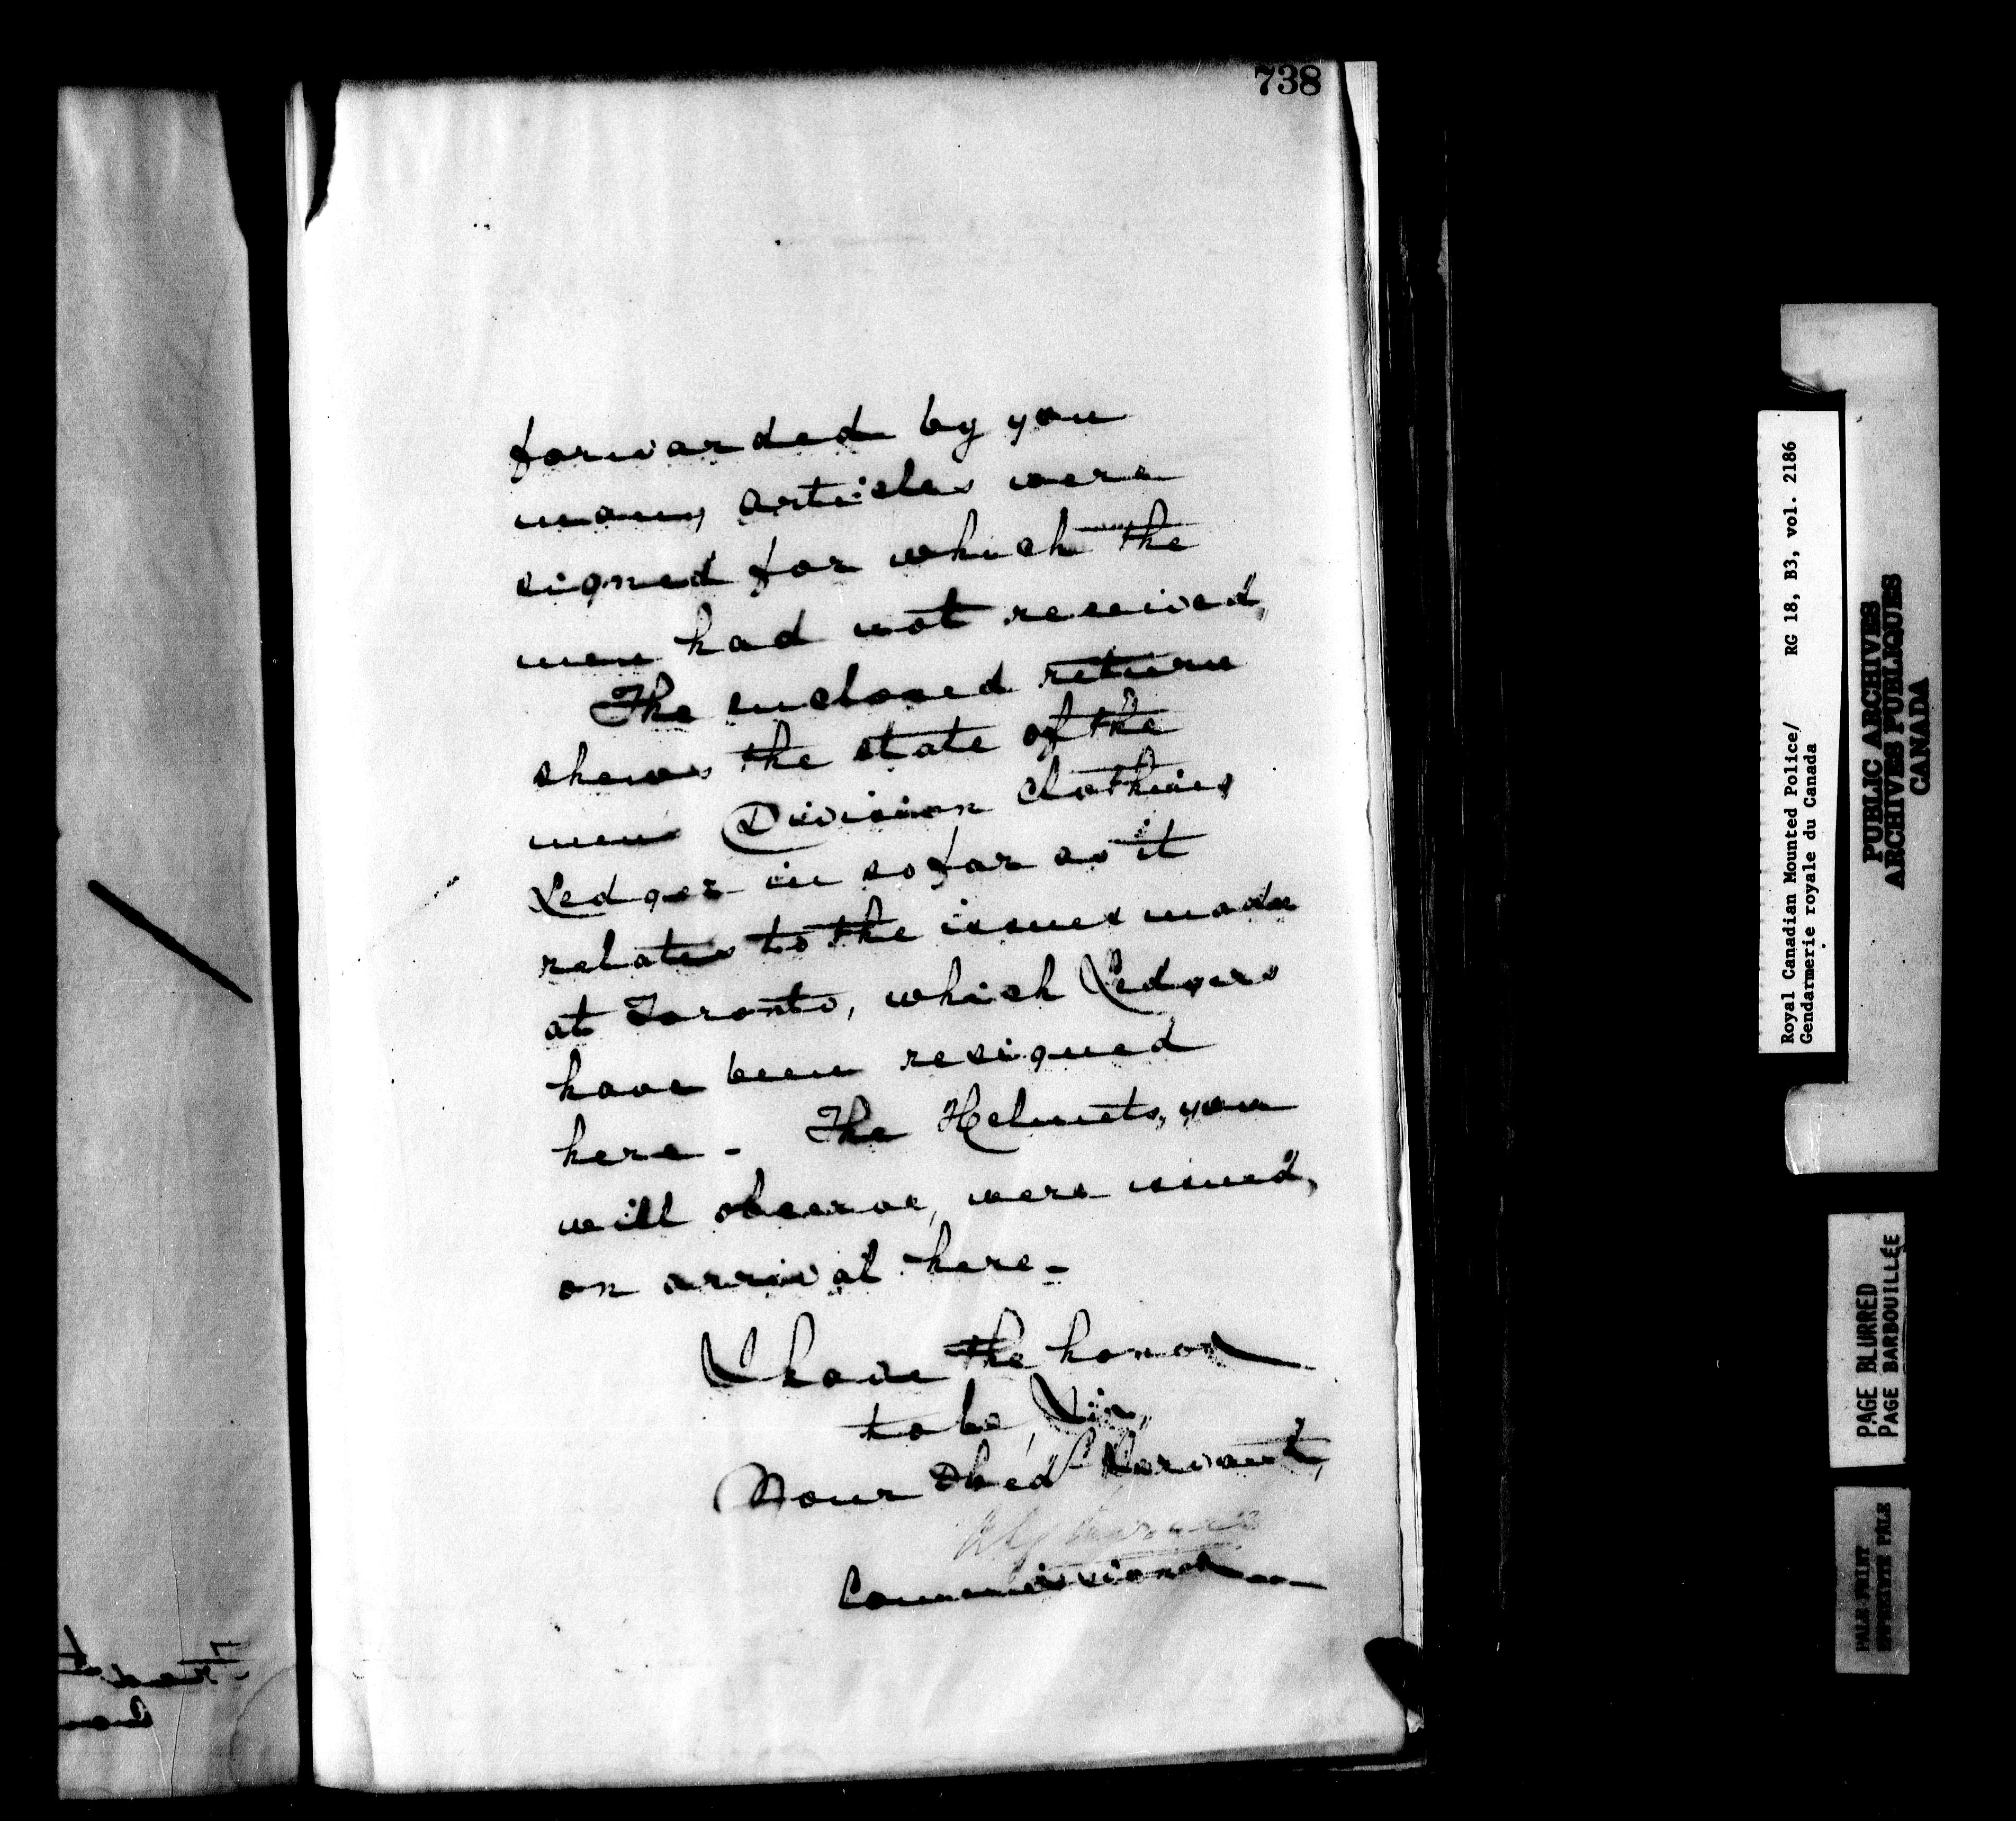 738
forwarded by you
many articles were
signed for which the
men had not received,
The enclosed return
shews the state of the
new Division Clothing
Ledger in so far as it
relates to the issues made
at Toronto, which Ledgers
have been resigned
here - The Helmets, you
will observe, were issued,
on arrival here -
I have the honor
to be, Sir,
Your Obedt Servant,
Commissioner
Royal Canadian Mounted Police/ RG 18, B3, vol. 2186
Gendarmerie royale du Canada
PUBLIC ARCHIVES
ARCHIVES PUBLIQUES
CANADA
PAGE BLURRED
PAGE BARBOUILLÉE
PALE PRINT
PÂLE